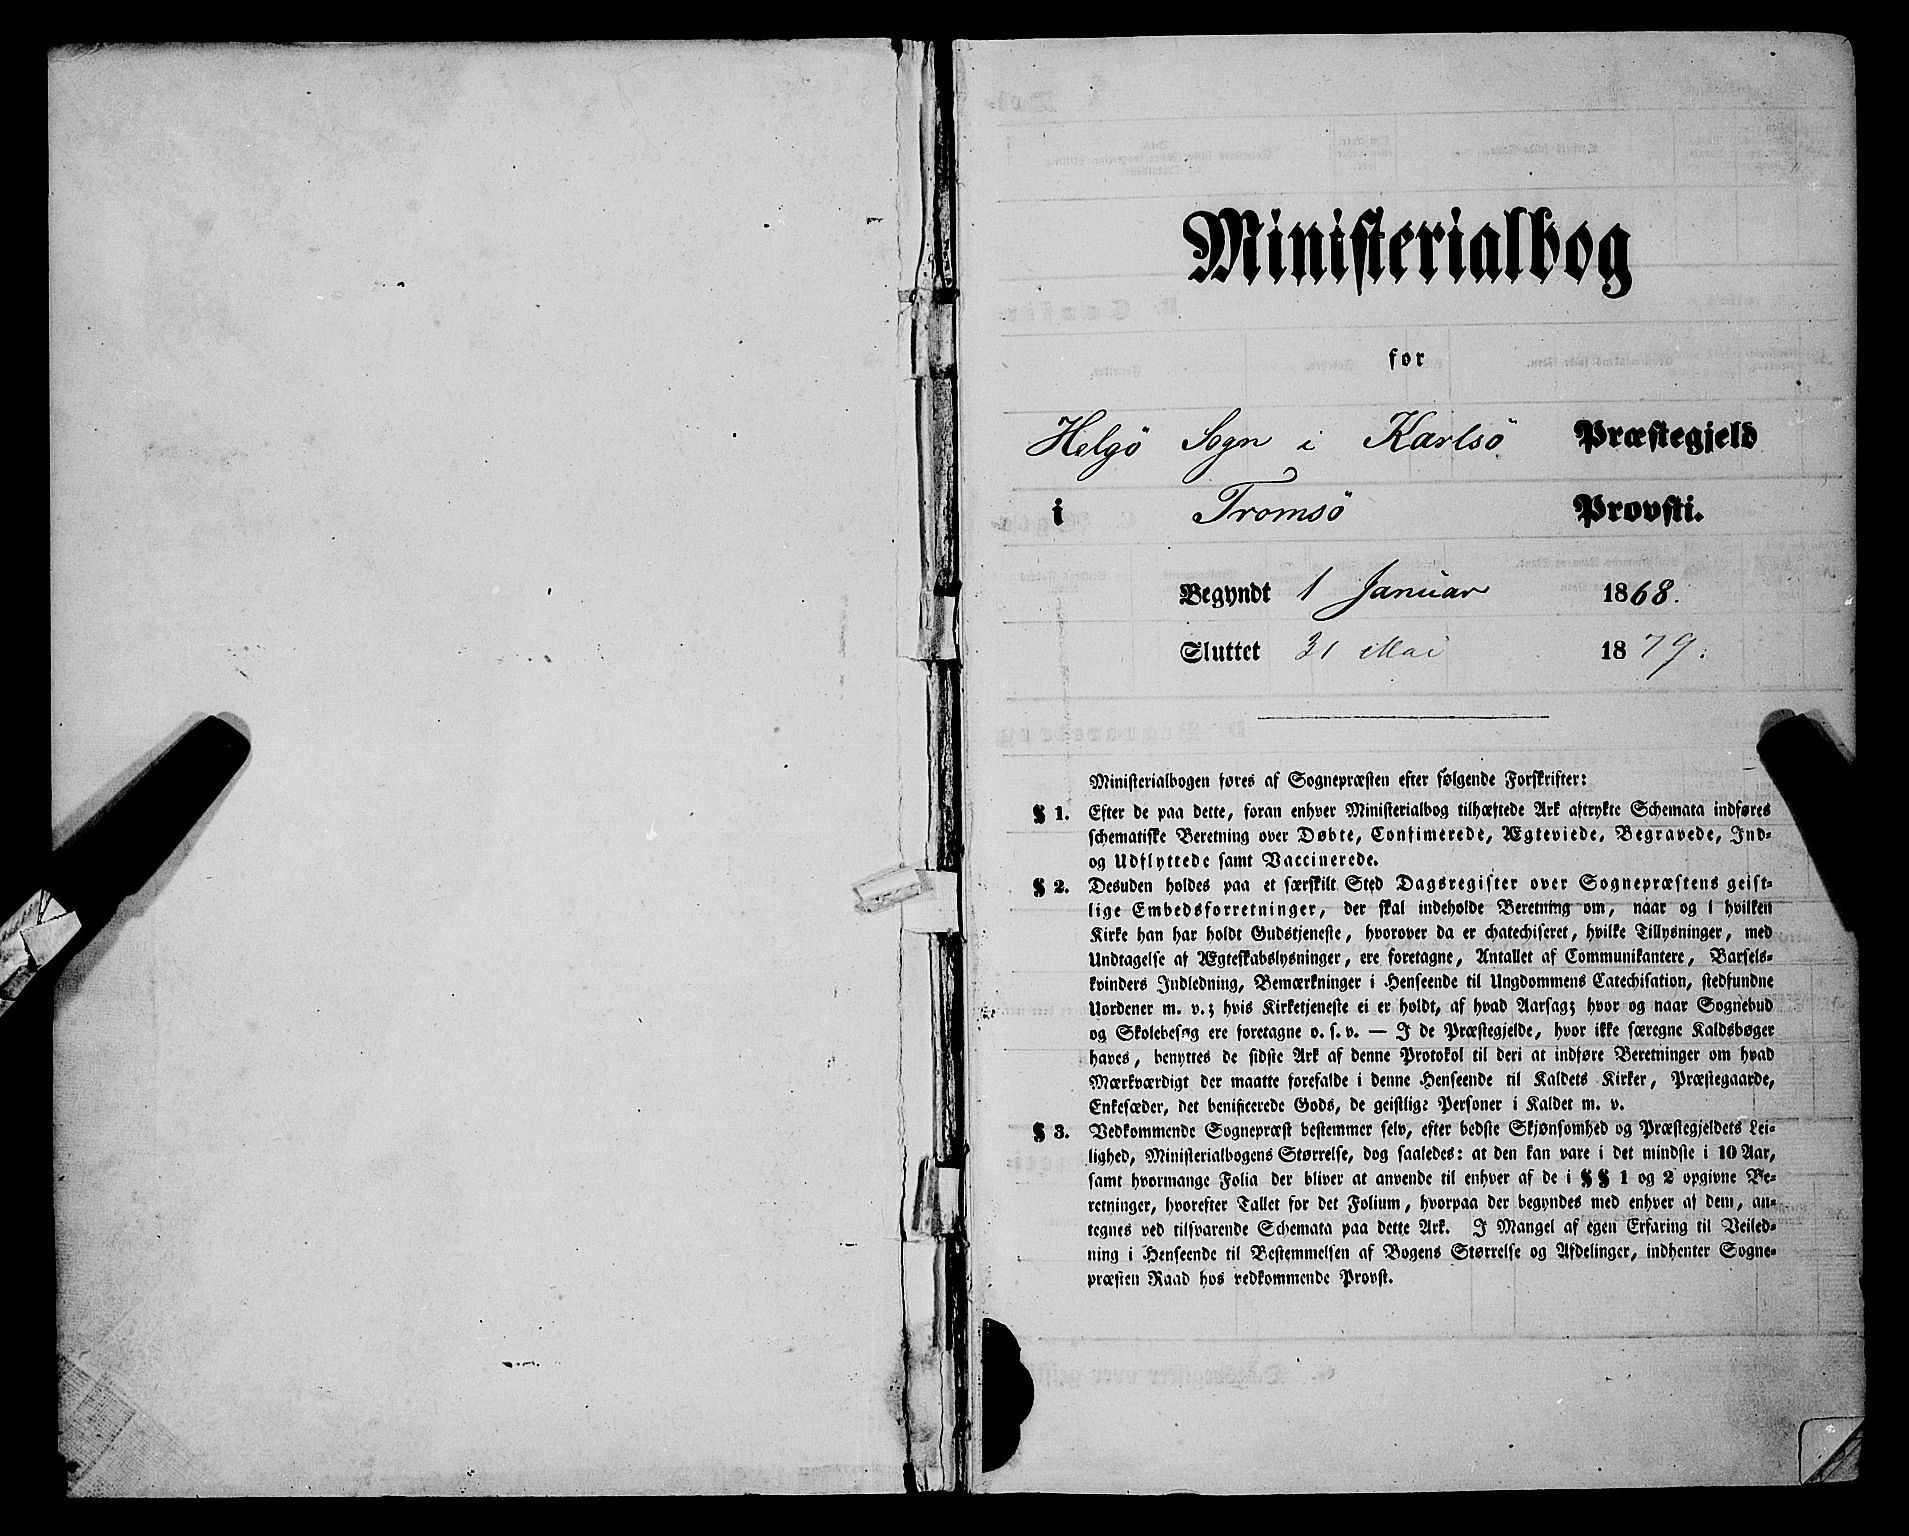 Ministerialbog
for
Helgö Sogn i Karlsö Præstegjeld
i Tromsö Provsti.
Begyndt 1 Januar 1868.
Sluttet 31 Mai 1879.
Ministerialbogen føres af Sognepræsten efter følgende Forskrifter:
§ 1. Efter de paa dette, foran enhver Ministerialbog tilhæftede Ark aftrykte Schemata indføres
schematiske Beretning over Døbte, Confimerede, Ægteviede, Begravede, Ind-
og Udflyttede samt Vaccinerede.
§ 2. Desuden holdes paa et særskilt Sted Dagsregister over Sognepræstens geist-
lige Embedsforretninger, der skal indeholde Beretning om, naar og i hvilken
Kirke han har holdt Gudstjeneste, hvorover da er chatechiseret, hvilke Tillysninger, med
Undtagelse af Ægteskabslysninger, ere foretagne, Antallet af Communikantere, Barsels-
kvinders Indledning, Bemærkninger i Henseende til Ungdommens Catechisation, stedfundne
Uordener m. v.; hvis Kirketjeneste ei er holdt, af hvad Aarsag; hvor og naar Sognebud
og Skolebesøg ere foretagne o. s. v. — I de Præstegjelde, hvor ikke særegne Kaldsbøger
haves, benyttes de sidste Ark af denne Protokol til deri at indføre Beretninger om hvad
Mærkværdigt der maatte forefalde i denne Henseende til Kaldets Kirker, Præstegaarde,
Enkesæder, det benificerede Gods, de geistlige Personer i Kaldet m. v.
§ 3. Vedkommende Sognepræst bestemmer selv, efter bedste Skjønsomhed og Præstegjeldets Lei-
lighed, Ministerialbogens Størrelse, dog saaledes: at den kan vare i det mindste i 10 Aar,
samt hvormange Folia der bliver at anvende til enhver af de i § § 1 og 2 opgivne Be-
retninger, hvorefter Tallet for det Folium, hvorpaa der begyndes med enhver af dem, an-
tegnes ved tilsvarende Schemata paa dette Ark. I Mangel af egen Erfaring til Veiled-
ning i Henseende til Bestemmelsen af Bogens Størrelse og Afdelinger, indhenter Sogne-
præsten Raad hos vedkommende Provst.